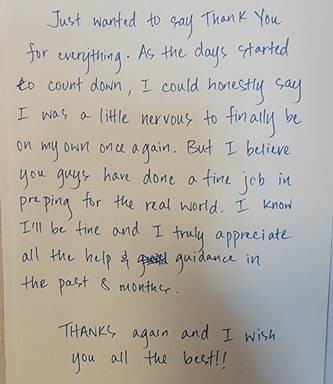 Just wanted to say Thank You
for everything. As the days started
to count down, I could honestly say
I was a little nervous to finally be
on my own once again. But I believe
you guys have done a fine job in
preping for the real world. I know
I'll be fine and I truly appreciate
all the help & guidance in
the past 8 months.
THANKS again and I wish
you all the best!!